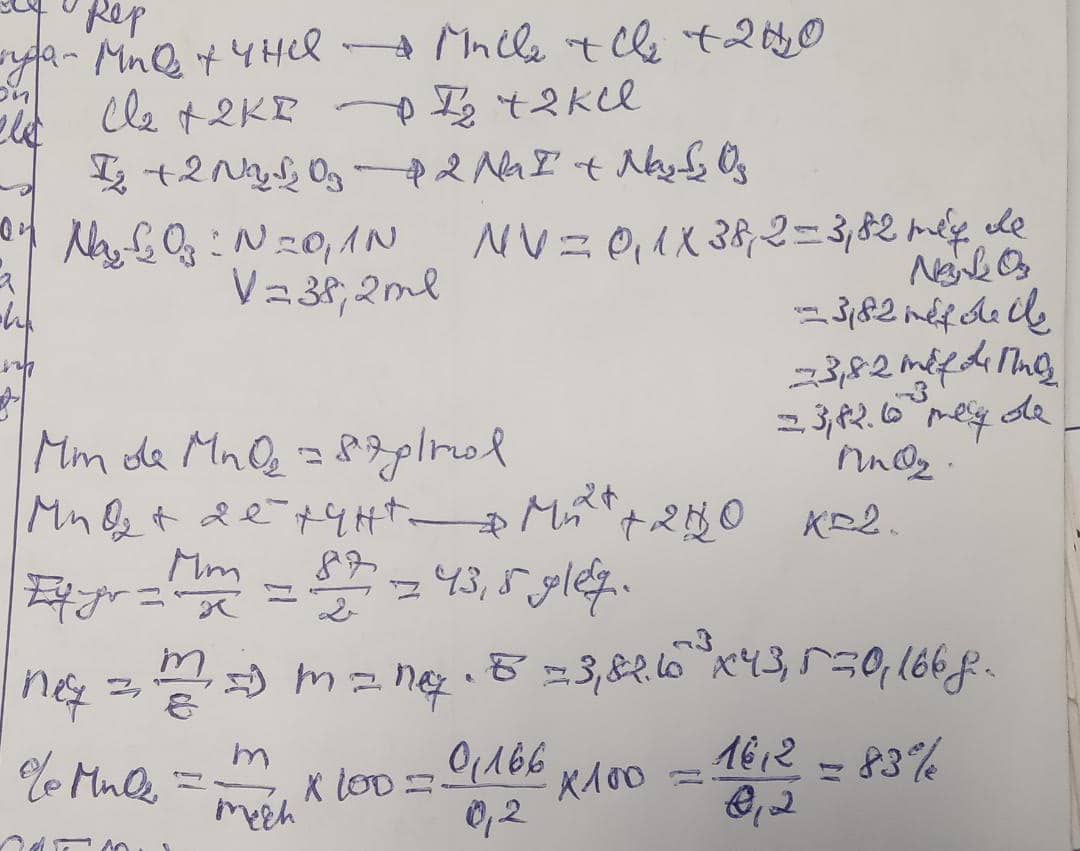 Rep
MnO2 + 4HCl → MnCl2 + Cl2 + 2H2O
Cl2 + 2KI → I2 + 2KCl
I2 + 2Na2S2O3 → 2NaI + Na2S2O3
Na2S2O3 : N = 0,1N NV = 0,1 X 38,2 = 3,82 méq de Na2S2O3
V = 38,2 ml
= 3,82 méq de Cl2
= 3,82 méq de MnO2
= 3,82.10^-3 méq de MnO2.
Mm de MnO2 = 87g/mol
MnO2 + 2e^- + 4H^+ → Mn^2+ + 2H2O x = 2.
Eq gr = Mm/x = 87/2 = 43,5 g/éq.
néq = m/E => m = néq . E = 3,82.10^-3 x 43,5 = 0,166g.
% MnO2 = m/mech x 100 = 0,166/0,2 x 100 = 16,2/0,2 = 83%